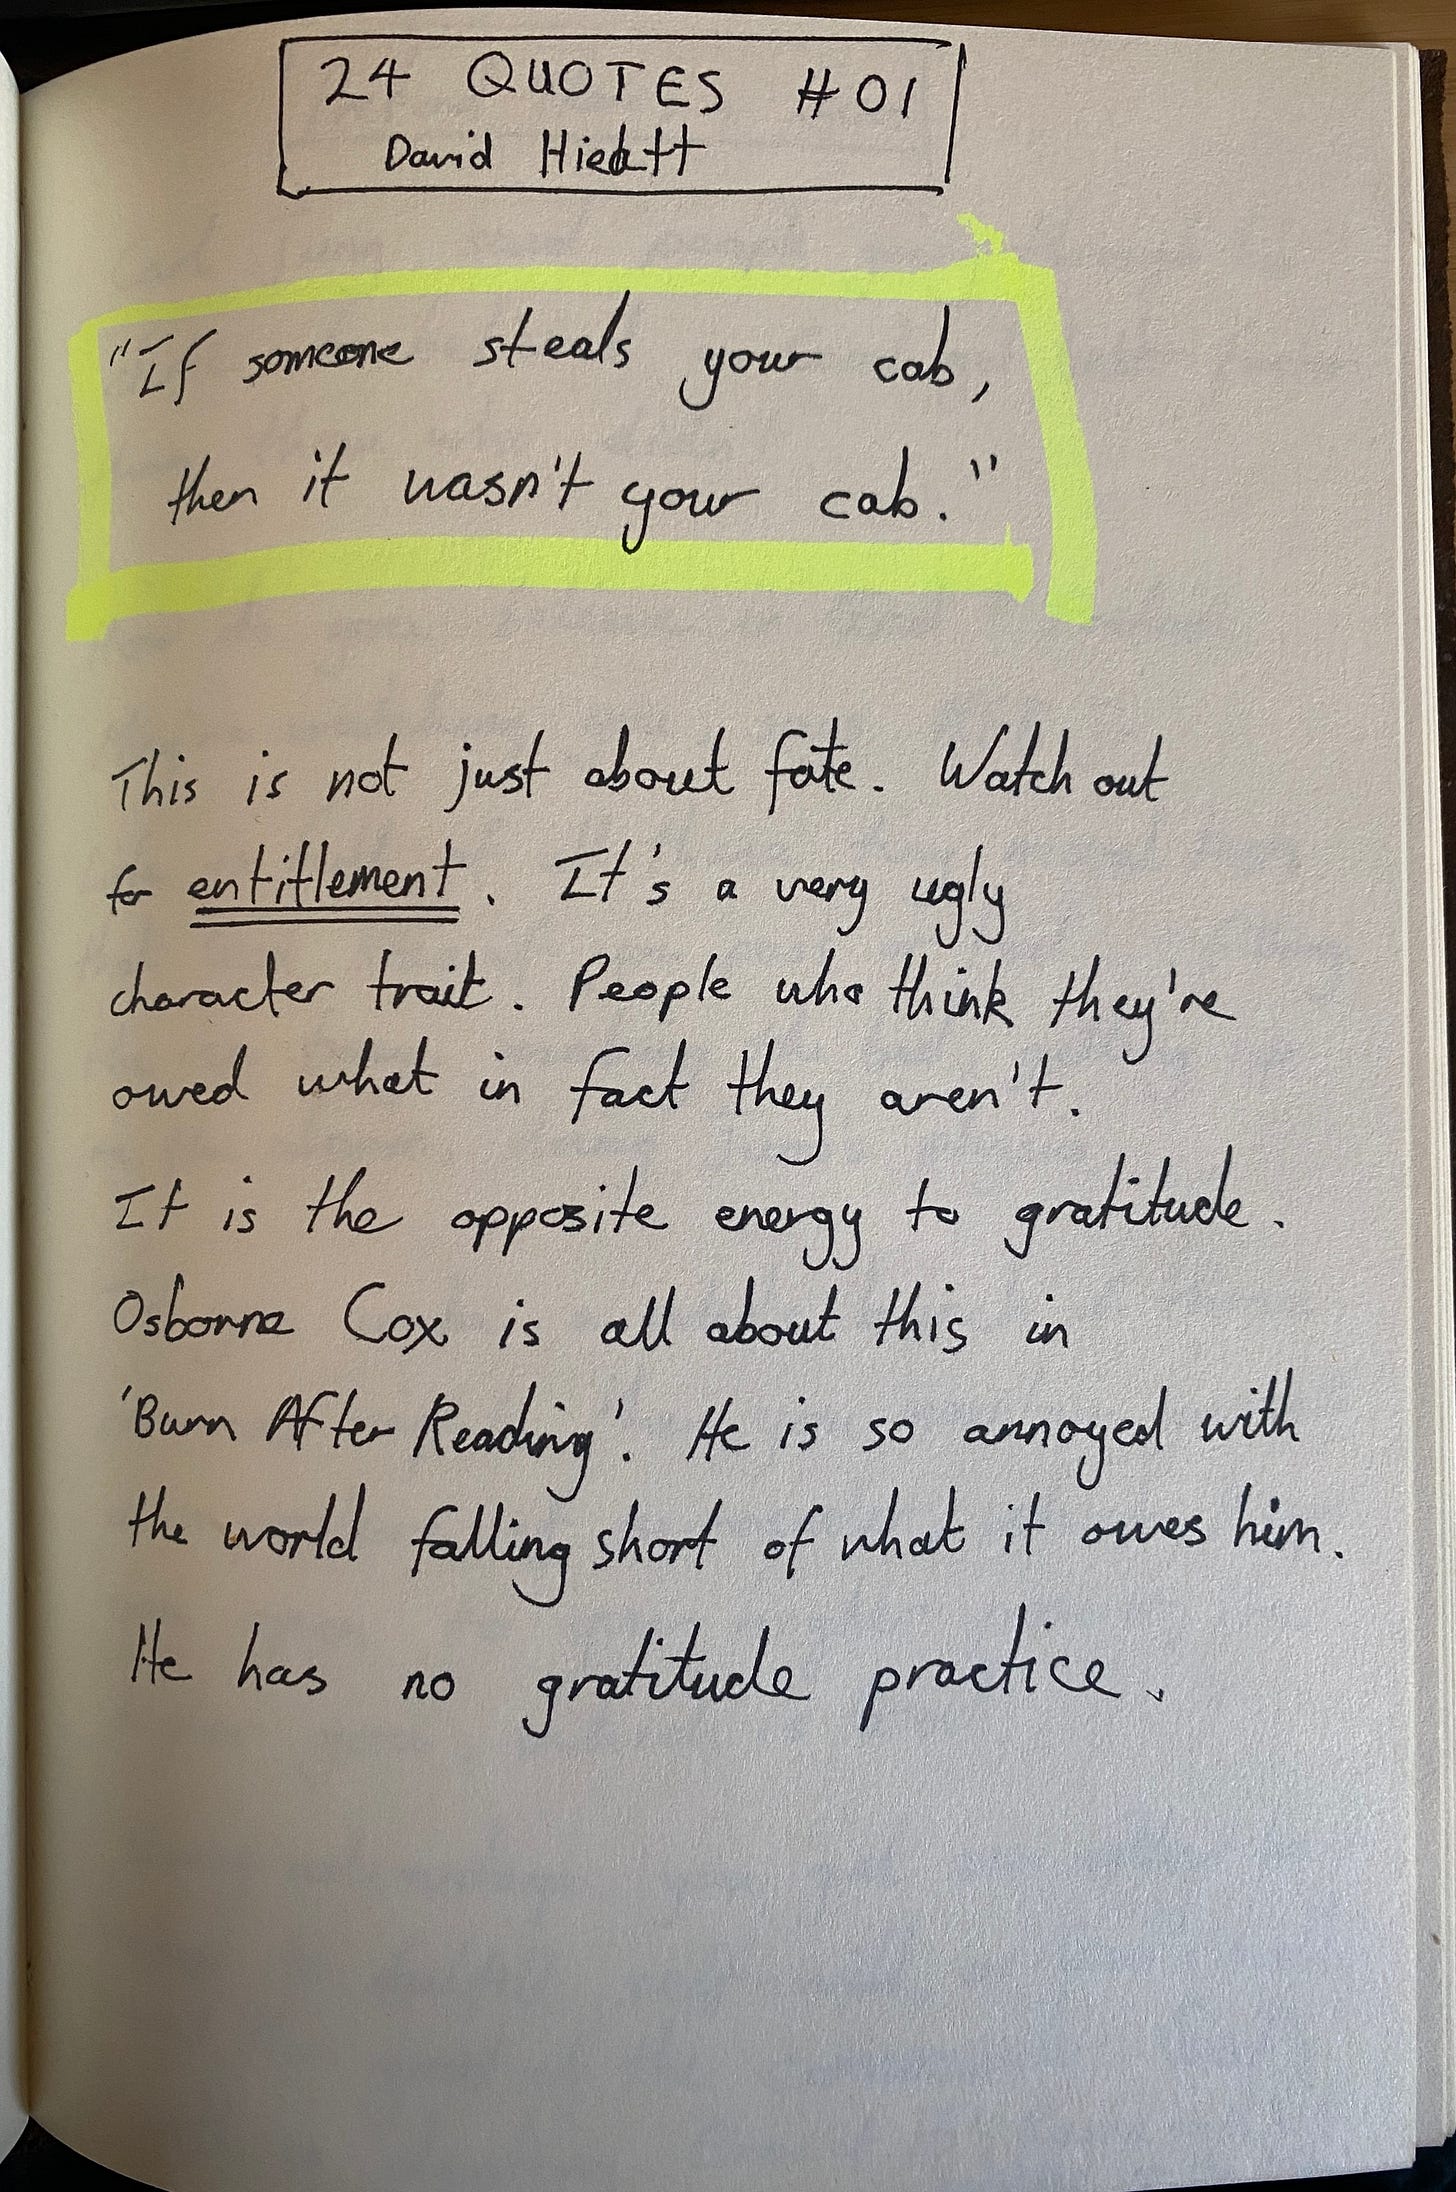 24 QUOTES #01
David Hieatt
"If someone steals your cab,
then it wasn't your cab."
This is not just about fate. Watch out
for entitlement. It's a very ugly
character trait. People who think they're
owed what in fact they aren't.
It is the opposite energy to gratitude.
Osborne Cox is all about this in
'Burn After Reading'. He is so annoyed with
the world falling short of what it owes him.
He has no gratitude practice.